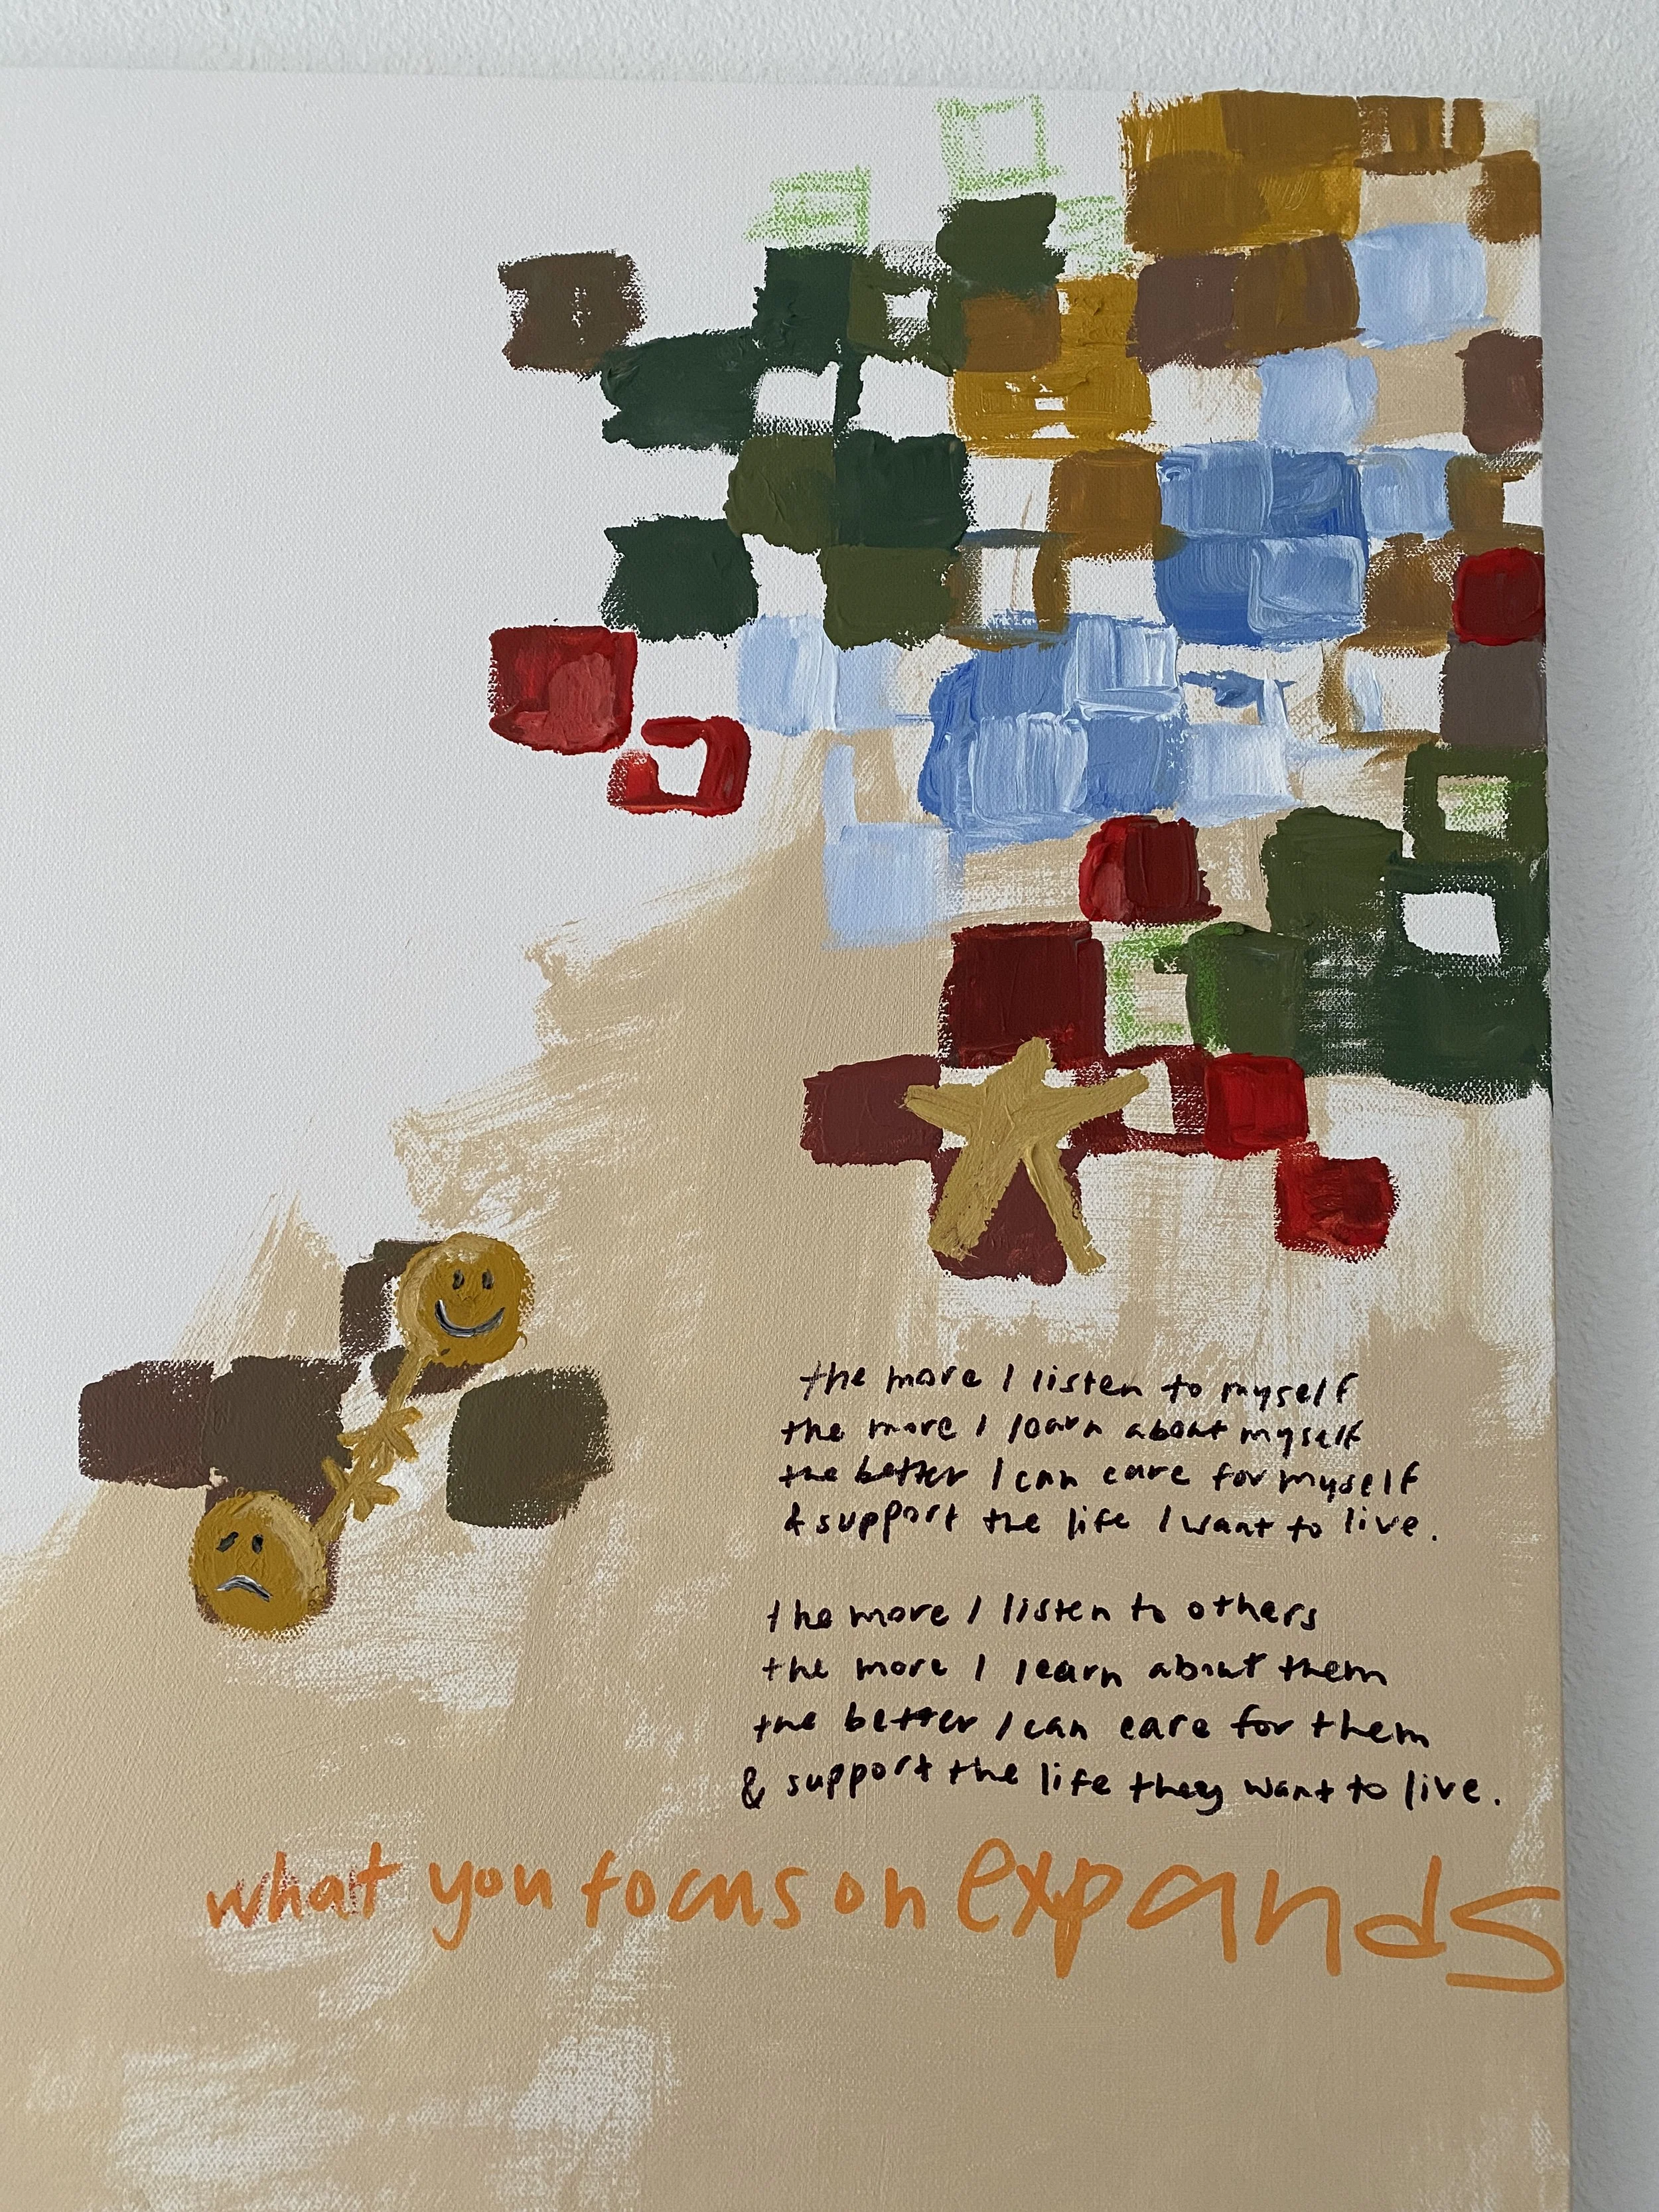 the more I listen to myself
the more I learn about myself
the better I can care for myself
& support the life I want to live.
the more I listen to others
the more I learn about them
the better I can care for them
& support the life they want to live.
what you focus on expands